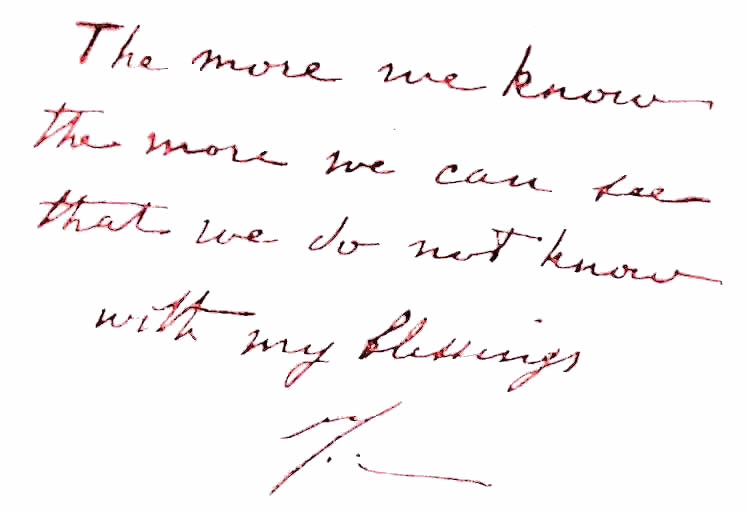 The more we know
the more we can see
that we do not know
with my blessings